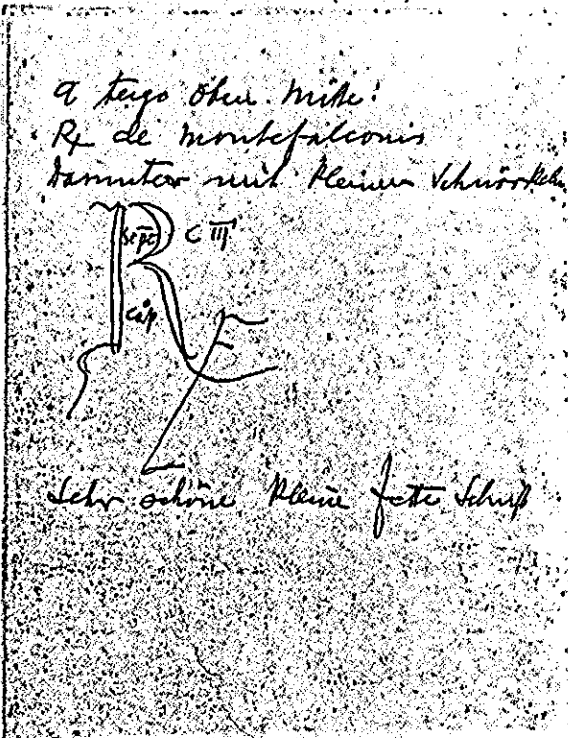 a tergo oben mitte:
Rx de montefalconis
darunter mit kleinen Schnörkeln
R script C III
cap
Sehr schöne kleine fette Schrift